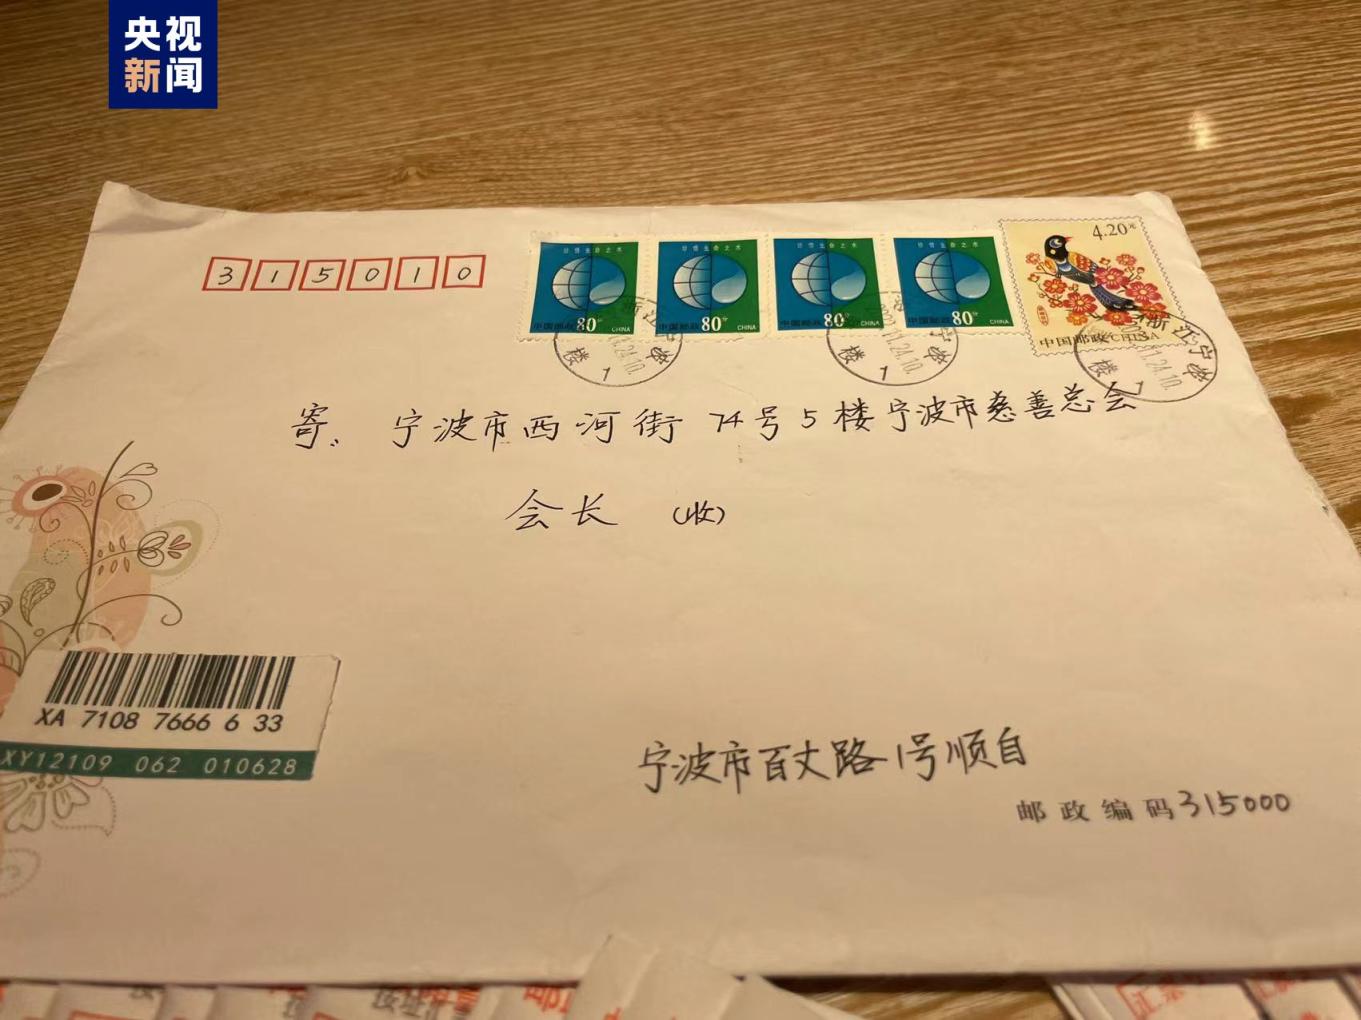 央视
新闻
315010
珍惜生命之水
中国邮政 80分 CHINA
珍惜生命之水
中国邮政 80分 CHINA
珍惜生命之水
中国邮政 80分 CHINA
珍惜生命之水
中国邮政 80分 CHINA
4.20元
中国邮政 CHINA
浙江宁
11.24.10
楼 1
寄、宁波市西河街74号5楼宁波市慈善总会
会长 (收)
XA 7108 7666 6 33
XY12109 062 010628
宁波市百丈路1号顺自
邮政编码315000